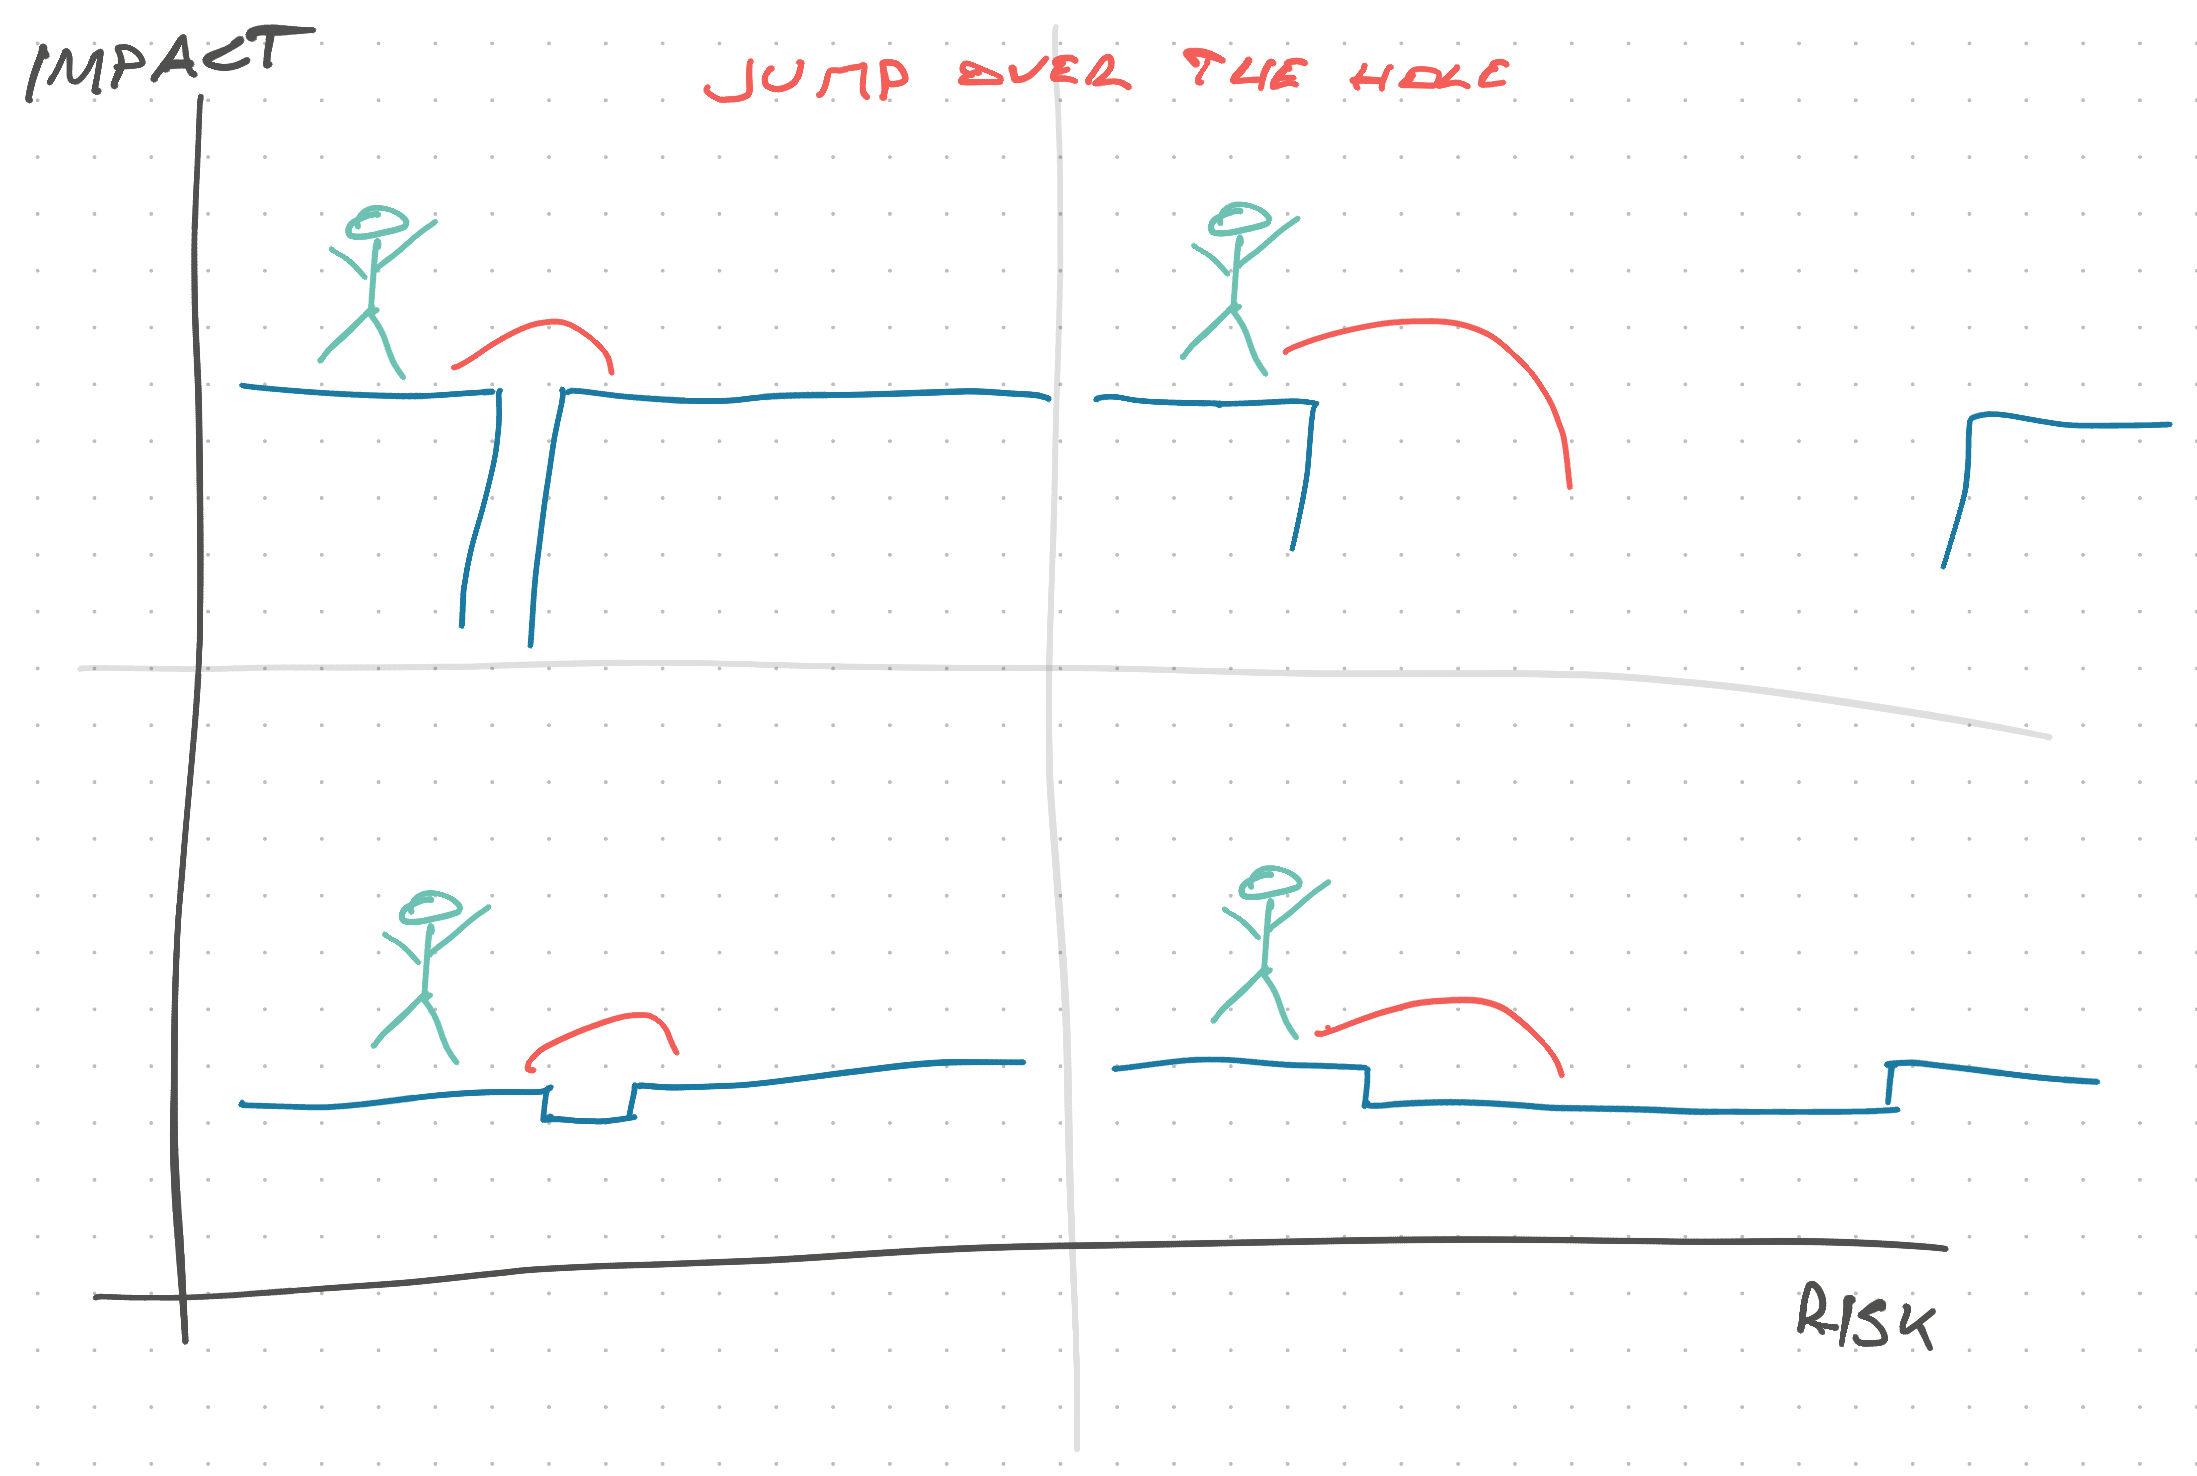 IMPACT
JUMP OVER THE HOLE
RISK